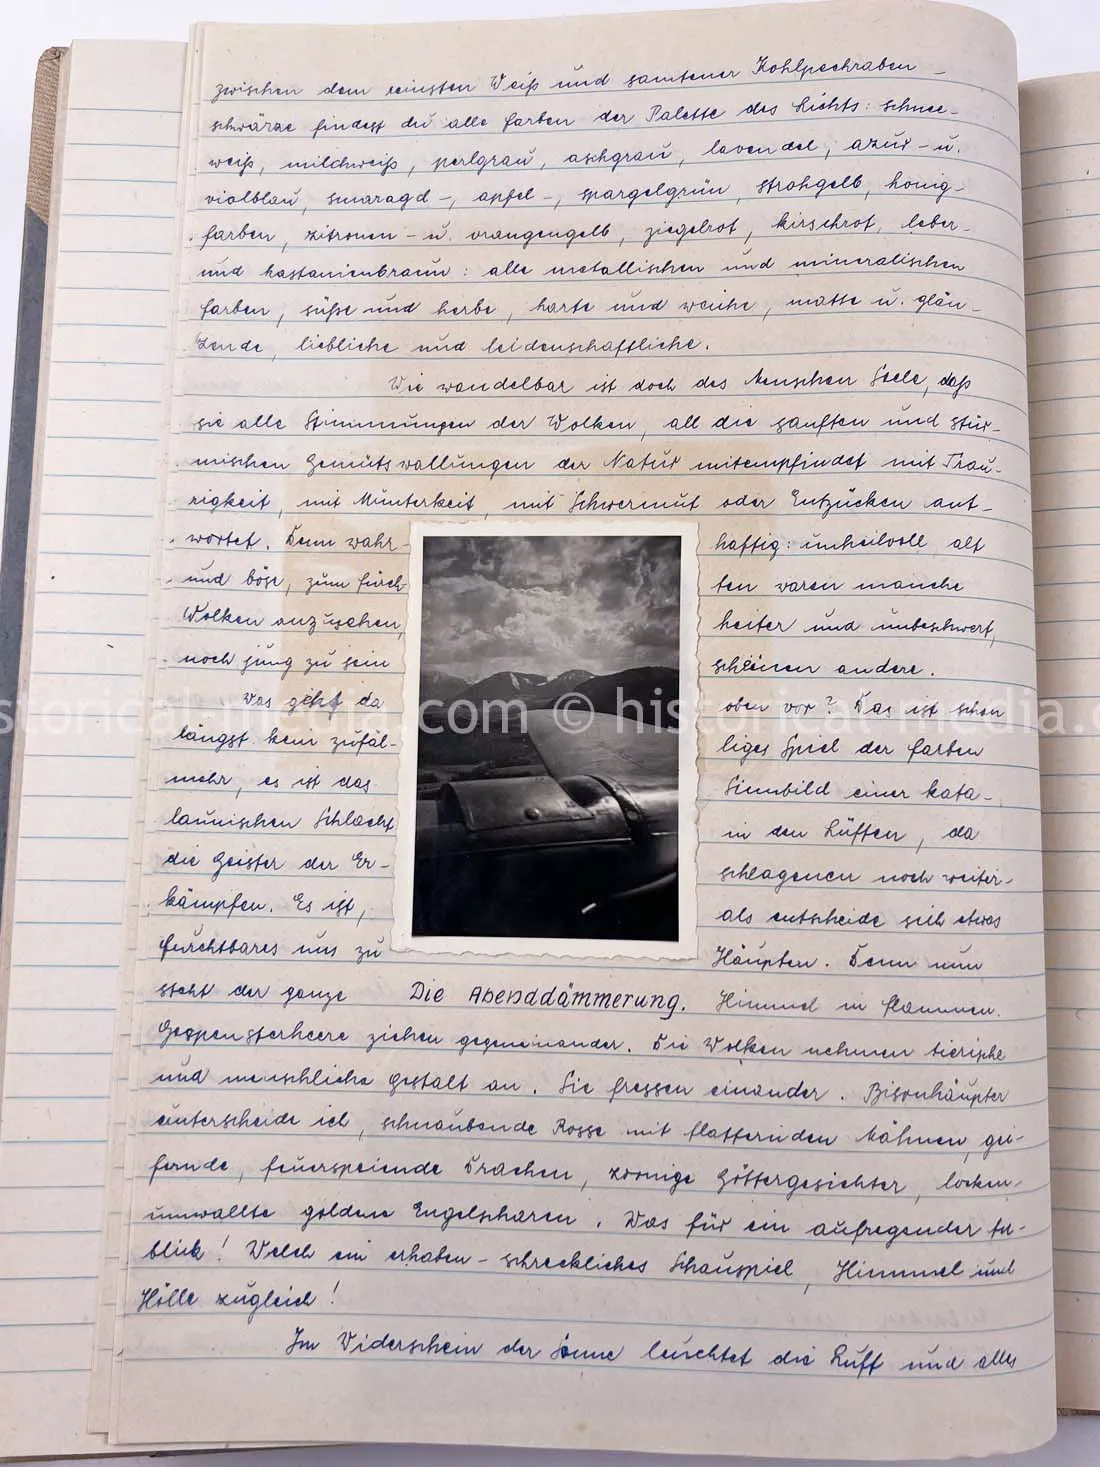 zwischen dem reinsten Weiß und samtener Kohlpechraben-
schwärze findest du alle Farben der Palette des Lichts: schnee-
weiß, milchweiß, perlgrau, aschgrau, lavendel, azur- u.
violblau, smaragd-, apfel-, spargelgrün, strohgelb, honig-
farben, zitronen- u. orangengelb, ziegelrot, kirschrot, leber-
und kastanienbraun: alle metallischen und mineralischen
Farben, süße und herbe, harte und weiche, matte u. glän-
zende, liebliche und leidenschaftliche.
Wie wandelbar ist doch des Menschen Seele, daß
sie alle Stimmungen der Wolken, all die sanften und stür-
mischen Gemütswallungen der Natur mitempfindet mit Trau-
rigkeit, mit Munterkeit, mit Schwermut oder Entzücken ant-
wortet. Denn wahr- haftig: unheilvoll, alt
und böse, zum fürch- ten waren manche
Wolken anzusehen, heiter und unbeschwert,
noch jung zu sein schienen andere.
Was geht da oben vor? Das ist schon
längst kein zufäl- liges Spiel der Farben
mehr, es ist das Sinnbild einer kata-
launischen Schlacht in den Lüften, da
die Geister der Er- schlagenen noch weiter-
kämpfen. Es ist, als entscheide sich etwas
furchtbares uns zu Häupten. Denn nun
steht der ganze Himmel in Flammen.
Die Abenddämmerung.
Gespensterheere ziehen gegeneinander. Die Wolken nehmen tierische
und menschliche Gestalt an. Sie fressen einander. Bisonhäupter
unterscheide ich, schnaubende Rosse mit flatternden Mähnen, gei-
fernde, feuerspeiende Drachen, zornige Göttergesichter, locken-
umwallte goldene Engelscharen. Was für ein aufregender An-
blick! Welch ein erhaben-schreckliches Schauspiel, Himmel und
Hölle zugleich!
Im Widerschein der Sonne leuchtet die Luft und alles
historical-media.com © historical-media.c